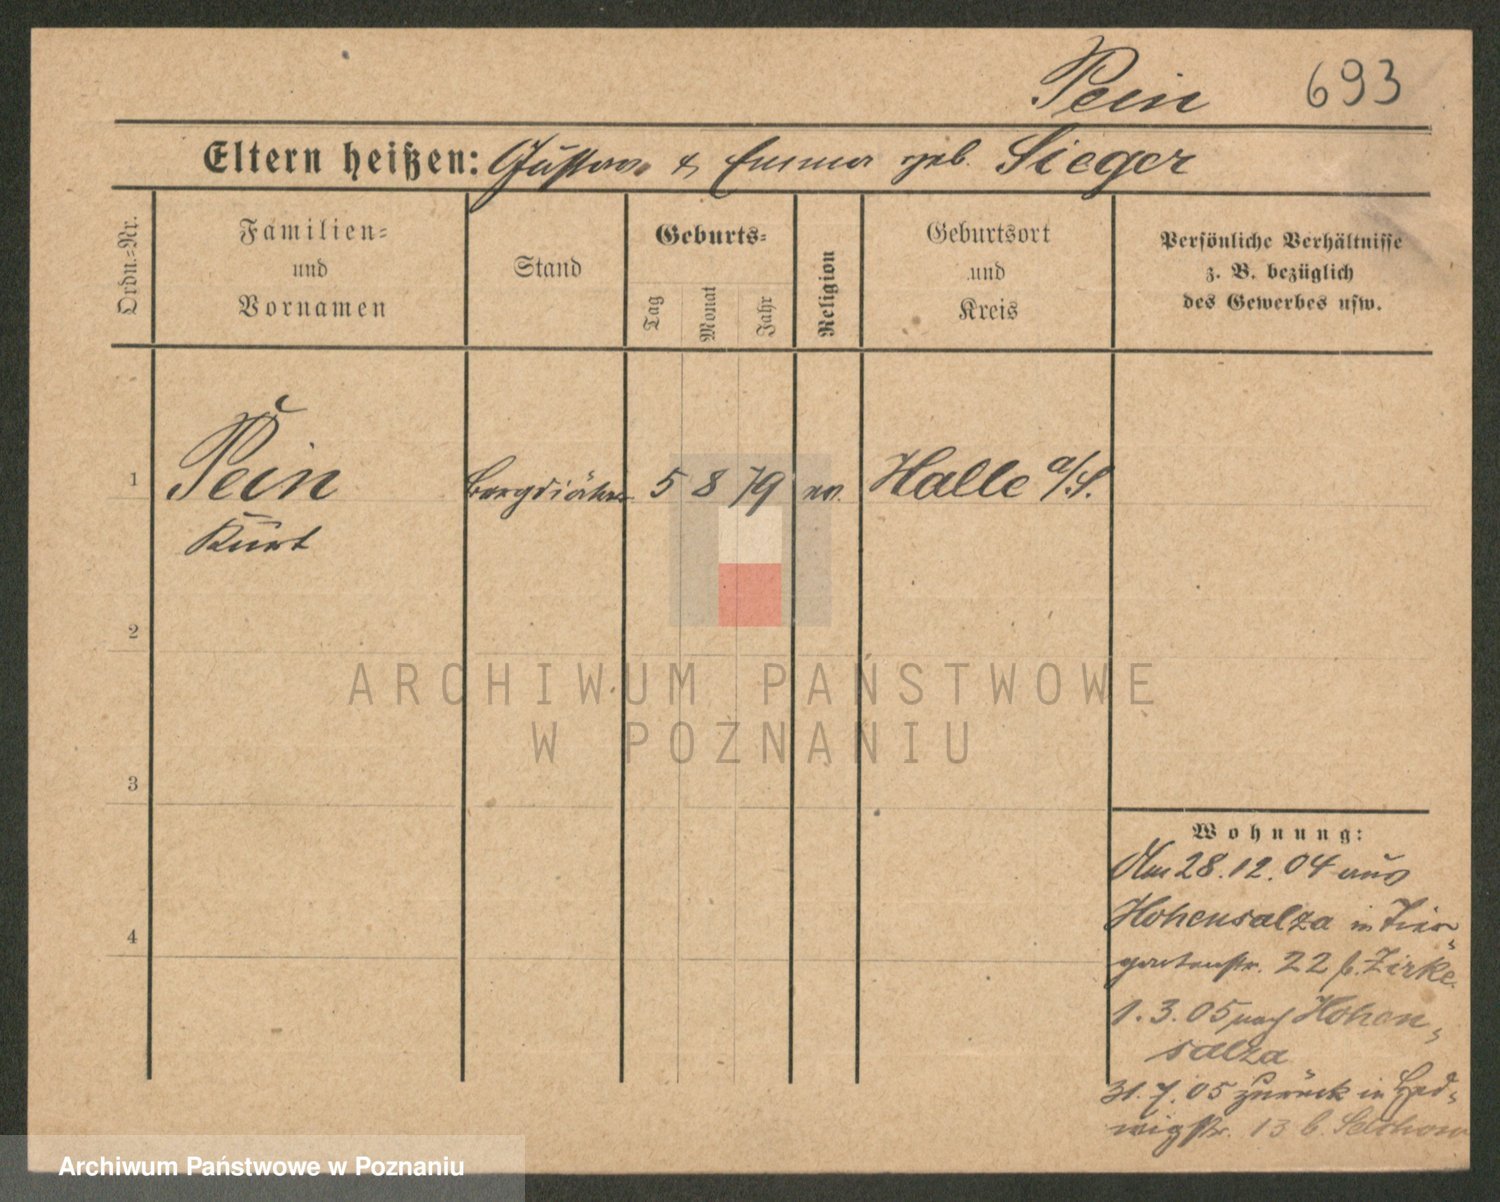 Pein 693
Eltern heißen: Gustav & Emma geb. Sieger
Ordn.-Nr.
Familien-
und
Vornamen
Stand
Geburts-
Tag
Monat
Jahr
Religion
Geburtsort
und
Kreis
Persönliche Verhältnisse
z. B. bezüglich
des Gewerbes usw.
1 Pein 5 8 79 ev. Halle a/S.
Kurt
2
3
4
Wohnung:
Am 28.12.04 aus
Hohensalza in Tier-
gartenstr. 22 b. Zirke.
1.3.05 nach Hohen-
salza
31.7.05 zurück in Hed-
wigstr. 13 b. Selchow
ARCHIWUM PAŃSTWOWE
W POZNANIU
Archiwum Państwowe w Poznaniu